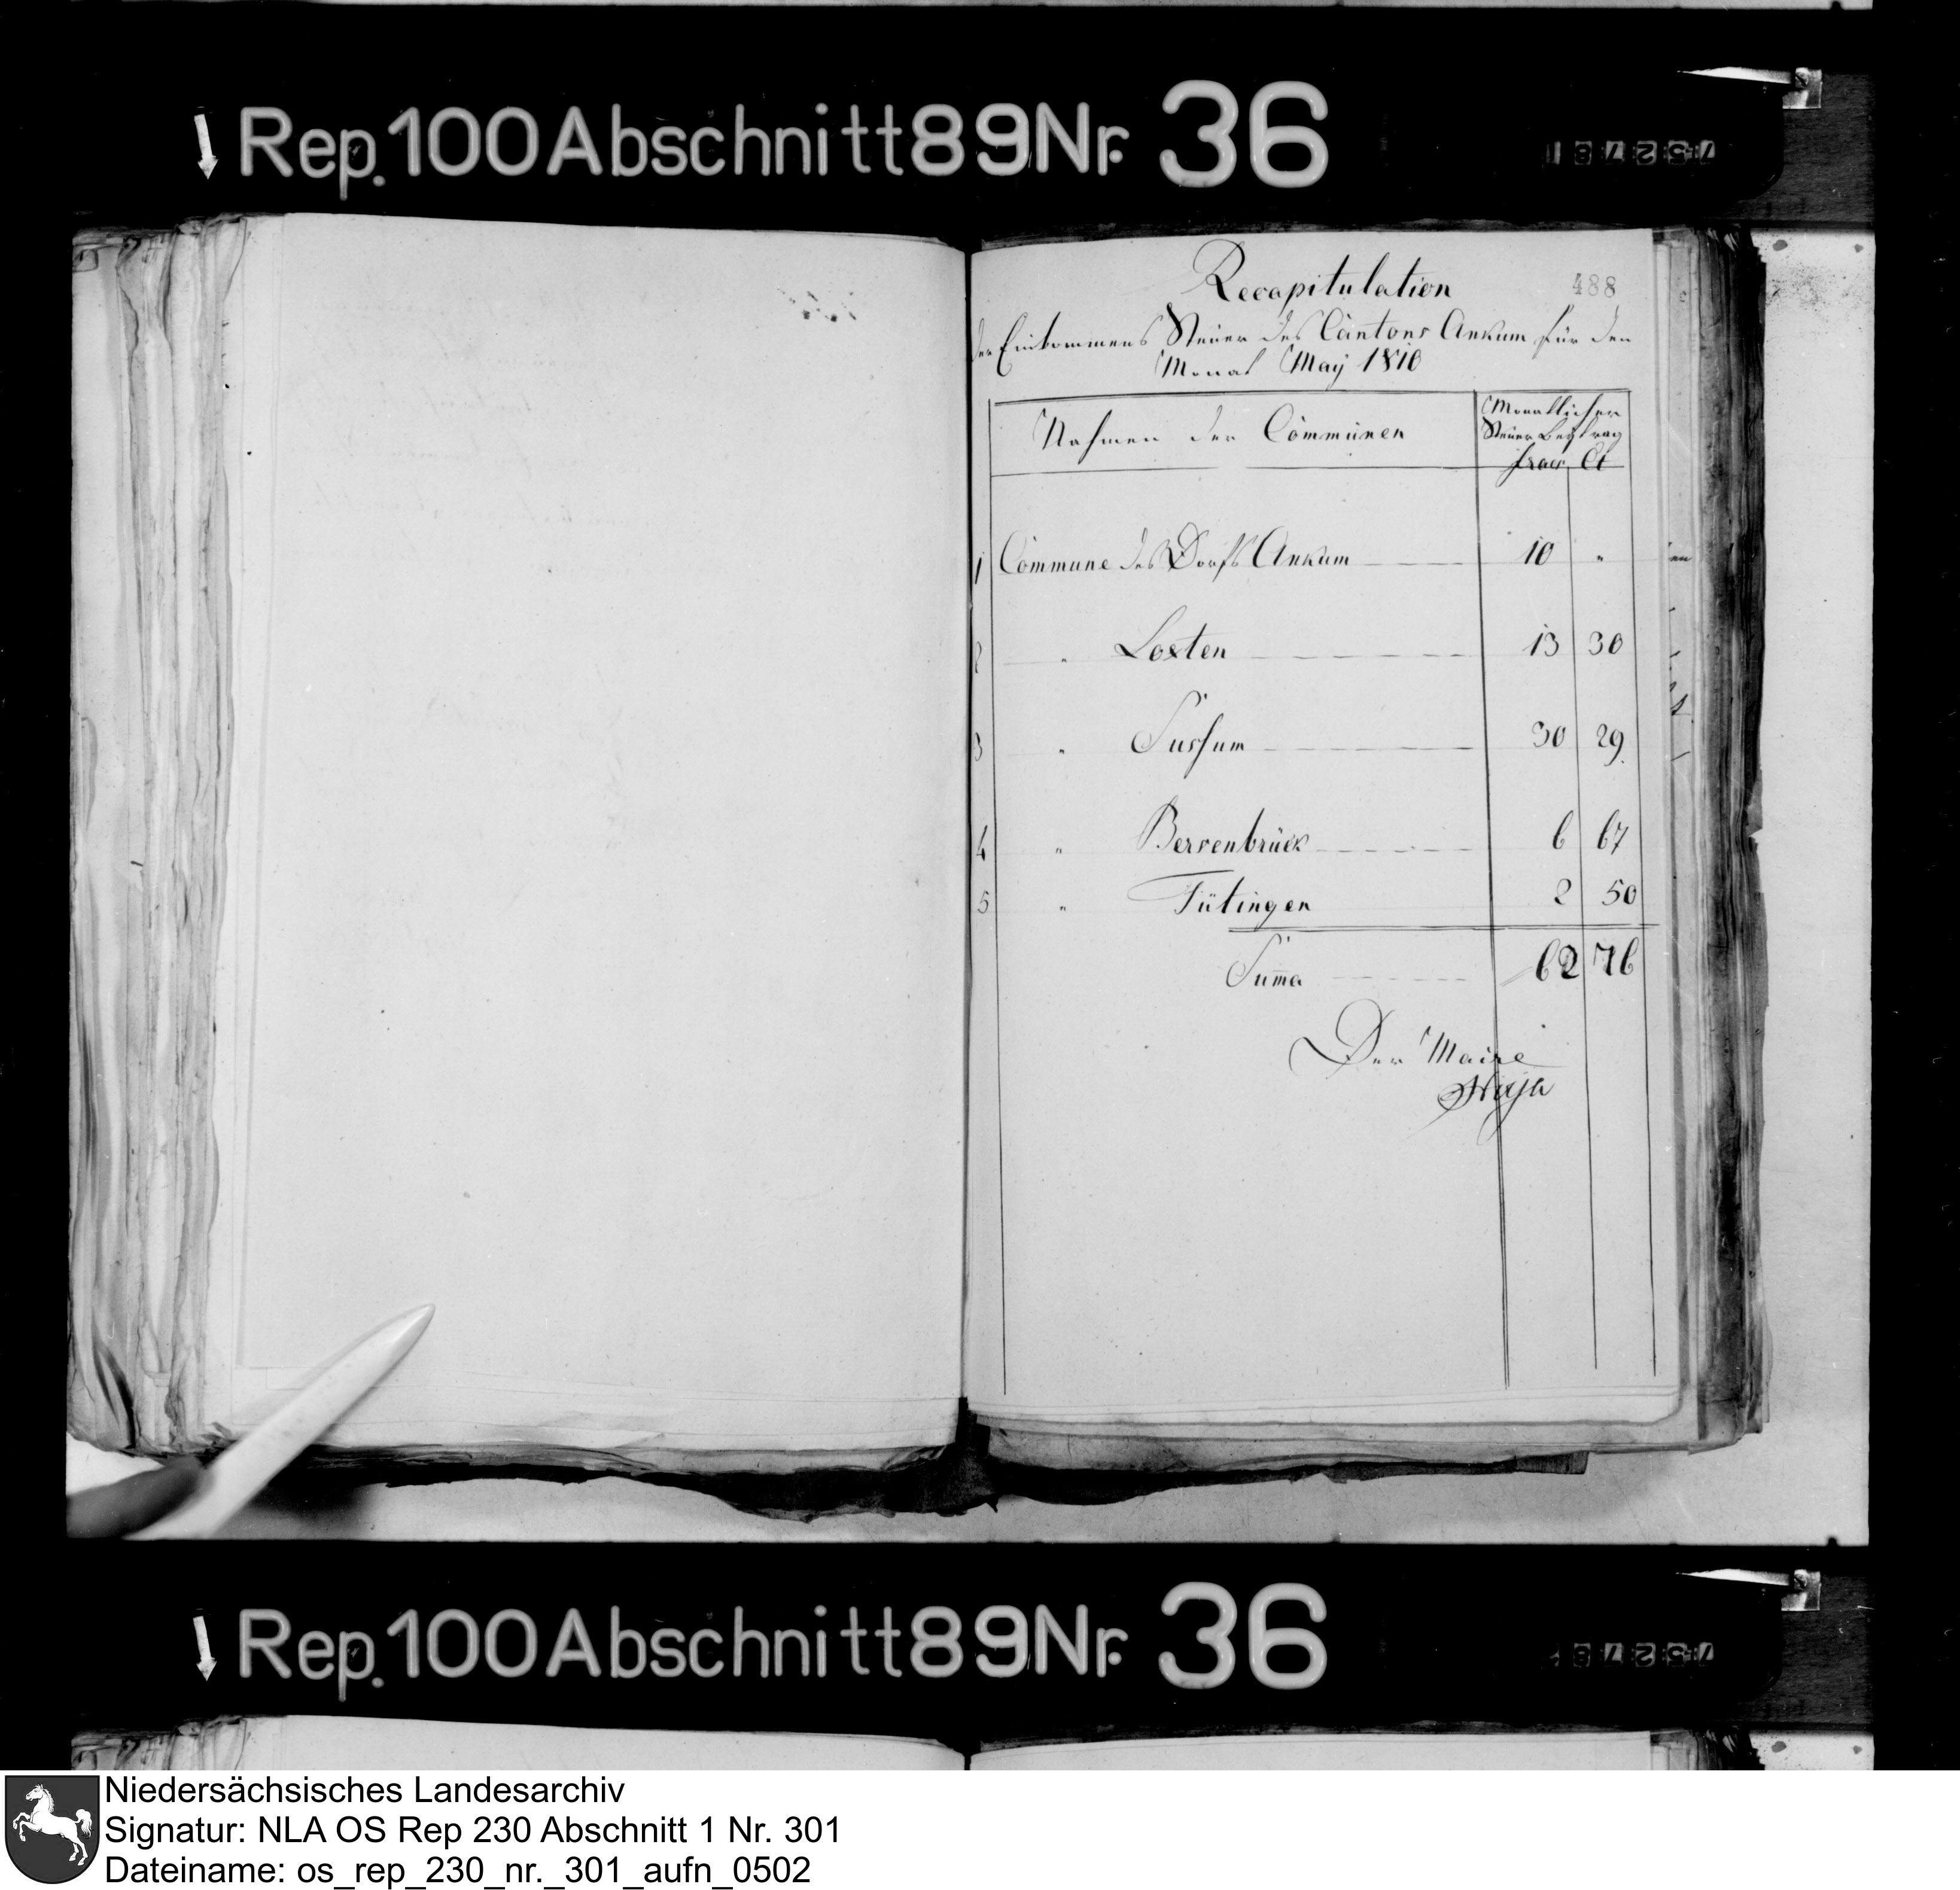 Rep.100Abschnitt89Nr. 36
Recapitulation
488
der Einkommens Steuer des Cantons Ankum für den
Monat May 1810
Nahmen der Communen
Monatlicher
Steuer Beytrag
francs Ct
1 Commune des Dorfs Ankum 10 "
2 " Loxten 13 30
3 " Sussum 30 29
4 " Bersenbrück 6 67
5 " Tütingen 2 50
Suma 62 76
Der Maire
Rep.100Abschnitt89Nr. 36
Niedersächsisches Landesarchiv
Signatur: NLA OS Rep 230 Abschnitt 1 Nr. 301
Dateiname: os_rep_230_nr._301_aufn_0502